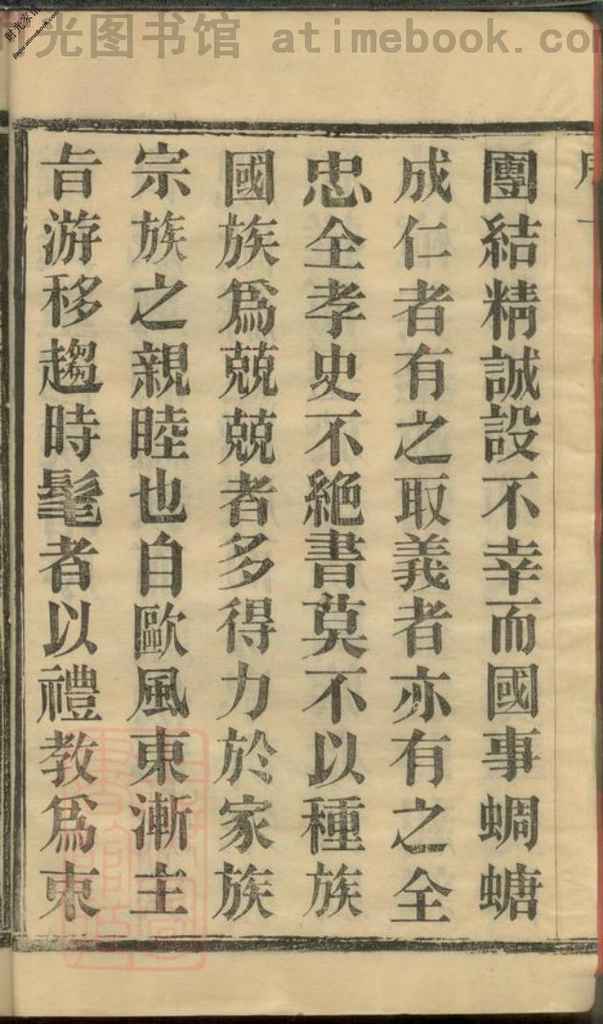 时光图书馆 atimebook.co
團結精誠設不幸而國事蜩螗
成仁者有之取義者亦有之全
忠全孝史不絕書莫不以種族
國族爲兢兢者多得力於家族
宗族之親睦也自歐風東漸主
旨游移趨時髦者以禮教爲束